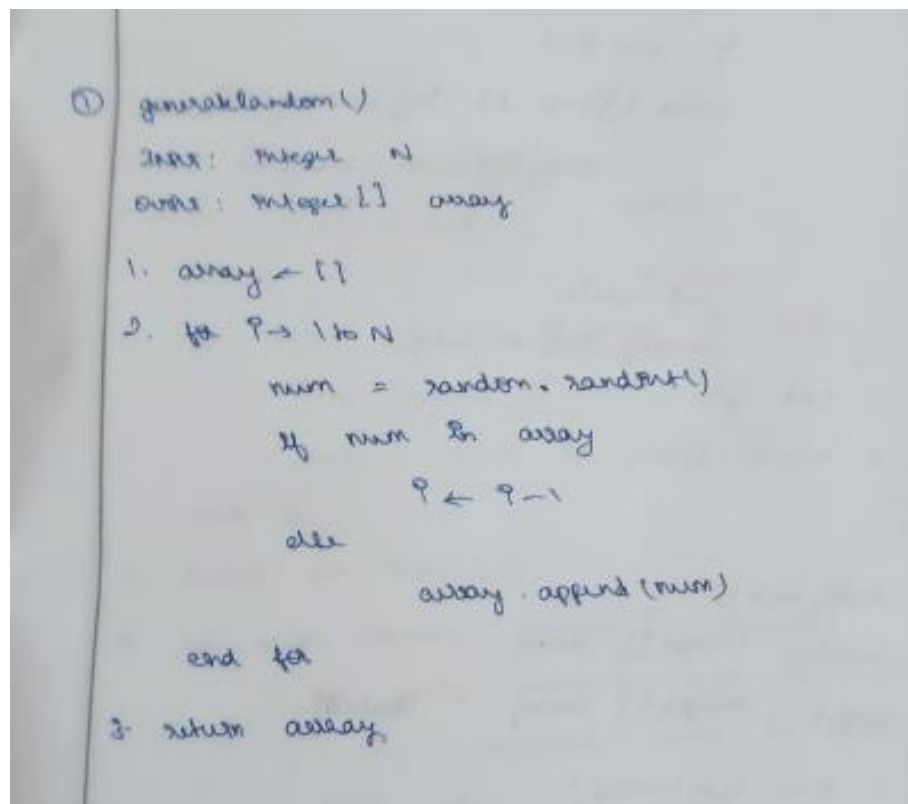 ① generateRandom()
Input: Integer N
Output: Integer [] array
1. array ← []
2. for i → 1 to N
num = random.randint()
if num in array
i ← i-1
else
array.append(num)
end for
3. return array